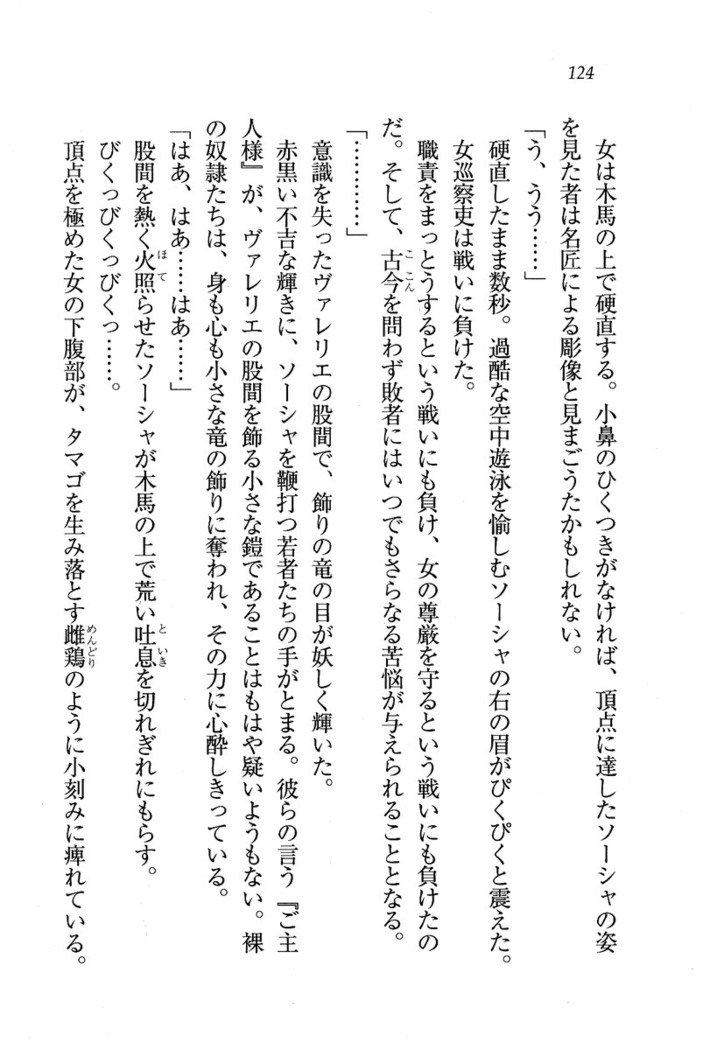 124
女は木馬の上で硬直する。小鼻のひくつきがなければ、頂点に達したソーシャの姿
を見た者は名匠による彫像と見まごうたかもしれない。
「う、うう……」
硬直したまま数秒。過酷な空中遊泳を愉しむソーシャの右の眉がぴくぴくと震えた。
女巡察吏は戦いに負けた。
職責をまっとうするという戦いにも負け、女の尊厳を守るという戦いにも負けたの
だ。そして、古今を問わず敗者にはいつでもさらなる苦悩が与えられることとなる。
「…………」
意識を失ったヴァレリエの股間で、飾りの竜の目が妖しく輝いた。
赤黒い不吉な輝きに、ソーシャを鞭打つ若者たちの手がとまる。彼らの言う『ご主
人様』が、ヴァレリエの股間を飾る小さな鎧であることはもはや疑いようもない。裸
の奴隷たちは、身も心も小さな竜の飾りに奪われ、その力に心酔しきっている。
「はあ、はあ……はあ……」
股間を熱く火照らせたソーシャが木馬の上で荒い吐息を切れぎれにもらす。
びくっびくっびくっ……。
頂点を極めた女の下腹部が、タマゴを生み落とす雌鶏のように小刻みに痺れている。